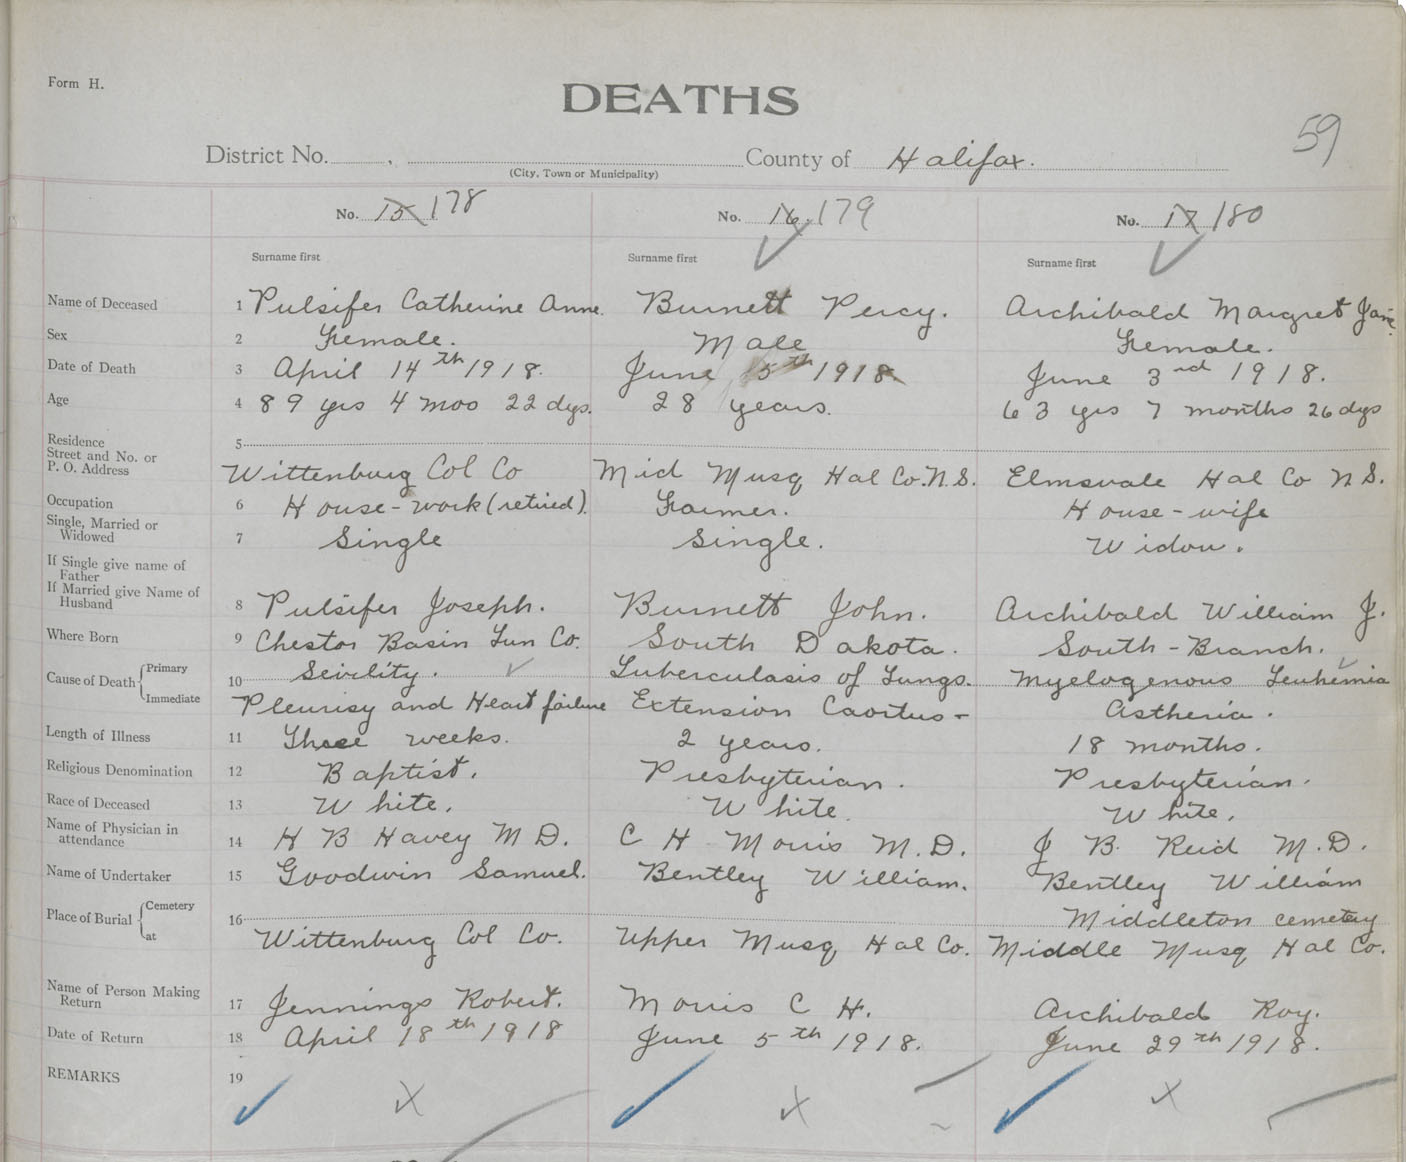 Form H.
DEATHS
59
District No. , County of Halifax.
(City, Town or Municipality)
No. 15 178 No. 16 179 No. 17 180
Surname first Surname first Surname first
Name of Deceased 1 Pulsifer Catherine Anne. Burnett Percy. Archibald Margret Jane.
Sex 2 Female. Male Female.
Date of Death 3 April 14th 1918. June 5th 1918. June 3rd 1918.
Age 4 89 yrs 4 mos 22 dys. 28 years. 63 yrs 7 months 26 dys
Residence
Street and No. or
P. O. Address 5 Wittenburg Col Co Mid Musq Hal Co. N.S. Elmsvale Hal Co N.S.
Occupation 6 House-work (retired). Farmer. House-wife
Single, Married or
Widowed 7 Single Single. Widow.
If Single give name of
Father
If Married give Name of
Husband 8 Pulsifer Joseph. Burnett John. Archibald William J.
Where Born 9 Chester Basin Lun Co. South Dakota. South-Branch.
Cause of Death Primary 10 Seirlity. Tuberculasis of Lungs. Myelogenous Leukemia
Immediate Pleurisy and Heart failure Extension Astheria.
Length of Illness 11 Three weeks. 2 years. 18 months.
Religious Denomination 12 Baptist. Presbyterian. Presbyterian.
Race of Deceased 13 White. White. White.
Name of Physician in
attendance 14 H B Havey M D. C H Morris M.D. J B. Reid M.D.
Name of Undertaker 15 Goodwin Samuel. Bentley William. Bentley William
Place of Burial Cemetery 16 Middleton cemetery
at Wittenburg Col Co. Upper Musq Hal Co. Middle Musq Hal Co.
Name of Person Making
Return 17 Jennings Robert. Morris C H. Archibald Roy.
Date of Return 18 April 18th 1918 June 5th 1918. June 29th 1918.
REMARKS 19